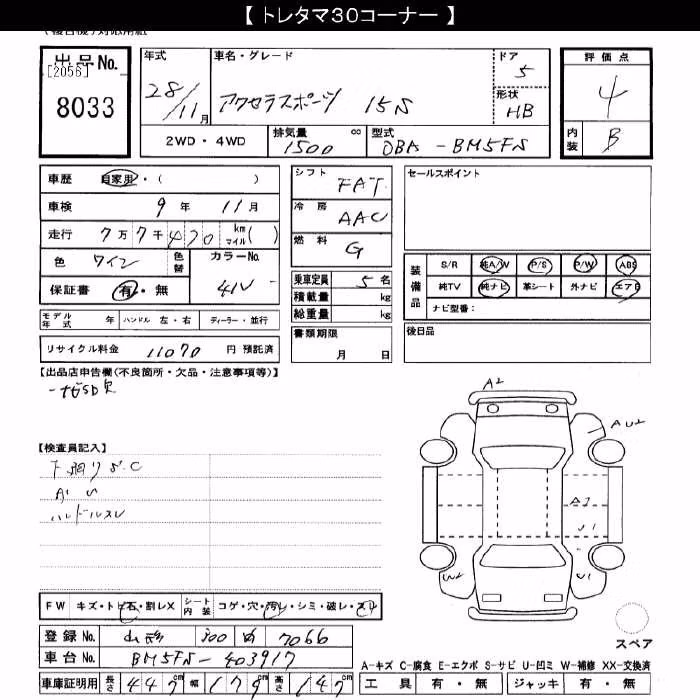 【 トレタマ30コーナー 】
出品No.
[2056]
8033
年式
28/11月
車名・グレード
アクセラスポーツ 15S
ドア
5
形状
HB
評価点
4
内装
B
2WD・4WD
排気量
1500 cc
型式
DBA - BM5FS
車歴 自家用・( )
車検 9年 11月
走行 7万7千420 km マイル( )
色 ワイン 色替
カラーNo.
41V
保証書 有・無
モデル年式 年 ハンドル 左・右 ディーラー・並行
リサイクル料金 11070 円 預託済
シフト FAT
冷房 AAC
燃料 G
乗車定員 5名
積載量 kg
総重量 kg
書類期限
月 日
セールスポイント
装備品
S/R 純A/W P/S P/W ABS
純TV 純ナビ 革シート 外ナビ エアB
ナビ型番:
後日品
【出品店申告欄(不良箇所・欠品・注意事項等)】
ナビSD欠
【検査員記入】
ハンドルスレ
A2
AU2
U1
W2
U1
スペア
FW キズ・トビ石・割レX シート内装 コゲ・穴・汚レ・シミ・破レ・スレ
登録No. 300 7066
車台No. BM5FS-403917
車庫証明用 長さ 447cm 幅 179cm 高さ 147cm
A-キズ C-腐食 E-エクボ S-サビ U-凹ミ W-補修 XX-交換済
工具 有・無 ジャッキ 有・無